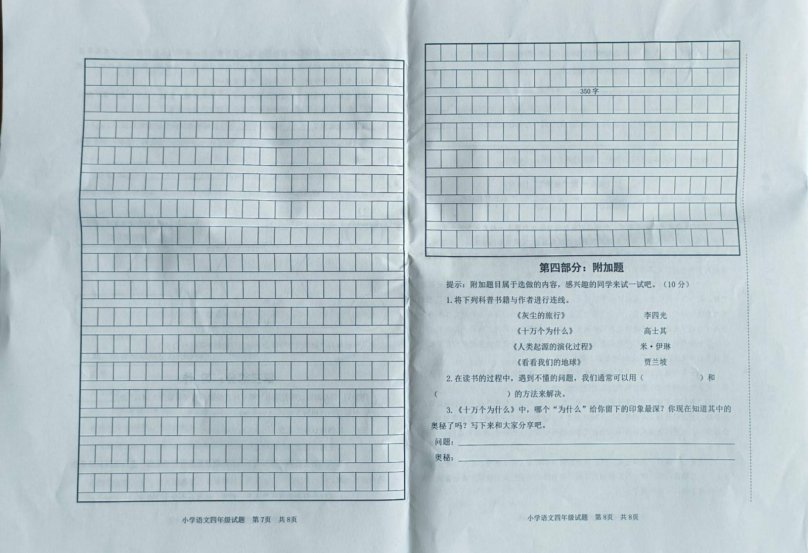 小学语文四年级试题 第7页 共8页
350字
第四部分：附加题
提示：附加题目属于选做的内容，感兴趣的同学来试一试吧。（10分）
1.将下列科普书籍与作者进行连线。
《灰尘的旅行》 李四光
《十万个为什么》 高士其
《人类起源的演化过程》 米·伊琳
《看看我们的地球》 贾兰坡
2.在读书的过程中，遇到不懂的问题，我们通常可以用（ ）和
（ ）的方法来解决。
3.《十万个为什么》中，哪个“为什么”给你留下的印象最深？你现在知道其中的
奥秘了吗？写下来和大家分享吧。
问题：
奥秘：
小学语文四年级试题 第8页 共8页